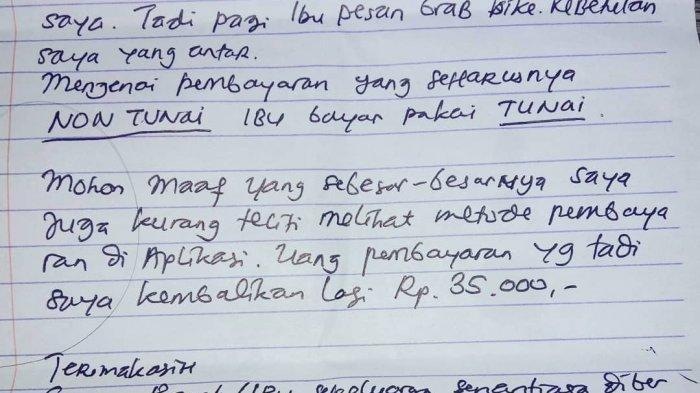 saya. Tadi pagi Ibu pesan Grab Bike. Kebetulan
saya yang antar.
Mengenai pembayaran yang seharusnya
NON TUNAI IBU bayar pakai TUNAI.
Mohon maaf yang sebesar-besarnya saya
juga kurang teliti melihat metode pembaya
ran di Aplikasi. Uang pembayaran yg tadi
saya kembalikan lagi Rp. 35.000,-
Terimakasih
Ibu sekeluarga senantiasa diber